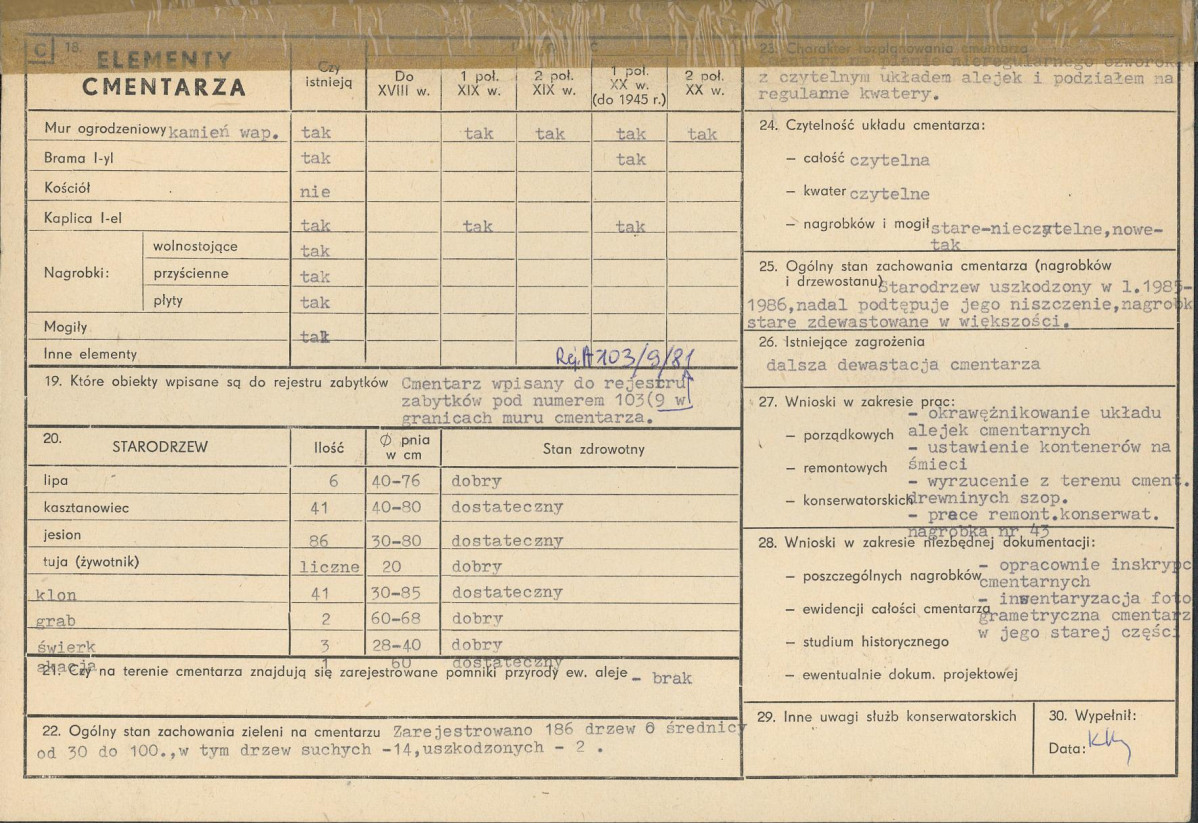 C 18. ELEMENTY CMENTARZA
Czy istnieją
Do XVIII w.
1 poł. XIX w.
2 poł. XIX w.
1 poł. XX w. (do 1945 r.)
2 poł. XX w.
Mur ogrodzeniowy kamień wap. tak tak tak tak tak
Brama I-yl tak tak
Kościół nie
Kaplica I-el tak tak tak
Nagrobki:
wolnostojące tak
przyścienne tak
płyty tak
Mogiły tak
Inne elementy
Rej.A 103/9/81
19. Które obiekty wpisane są do rejestru zabytków Cmentarz wpisany do rejestru
zabytków pod numerem 103(9 w
granicach muru cmentarza.
20. STARODRZEW Ilość Ø pnia w cm Stan zdrowotny
lipa 6 40-76 dobry
kasztanowiec 41 40-80 dostateczny
jesion 86 30-80 dostateczny
tuja (żywotnik) liczne 20 dobry
klon 41 30-85 dostateczny
grab 2 60-68 dobry
świerk 3 28-40 dobry
akacja 1 60 dostateczny
21. Czy na terenie cmentarza znajdują się zarejestrowane pomniki przyrody ew. aleje - brak
22. Ogólny stan zachowania zieleni na cmentarzu Zarejestrowano 186 drzew o średnicy
od 30 do 100.,w tym drzew suchych -14,uszkodzonych - 2 .
23. Charakter rozplanowania cmentarza
na planie nieregularnego czworok
z czytelnym układem alejek i podziałem na
regularne kwatery.
24. Czytelność układu cmentarza:
— całość czytelna
— kwater czytelne
— nagrobków i mogił stare-nieczytelne,nowe-
tak
25. Ogólny stan zachowania cmentarza (nagrobków
i drzewostanu) Starodrzew uszkodzony w l.1985-
1986,nadal podtępuje jego niszczenie,nagrobk
stare zdewastowane w większości.
26. Istniejące zagrożenia
dalsza dewastacja cmentarza
27. Wnioski w zakresie prąc:
— porządkowych
— remontowych
— konserwatorskich
- okrawężnikowanie układu
alejek cmentarnych
- ustawienie kontenerów na
śmieci
- wyrzucenie z terenu cment.
drewninych szop.
- prace remont.konserwat.
nagrobka nr 43
28. Wnioski w zakresie niezbędnej dokumentacji:
— poszczególnych nagrobków
— ewidencji całości cmentarza
— studium historycznego
— ewentualnie dokum. projektowej
- opracownie inskrypc
cmentarnych
- inwentaryzacja foto
grametryczna cmentarz
w jego starej części
29. Inne uwagi służb konserwatorskich
30. Wypełnił:
Data: